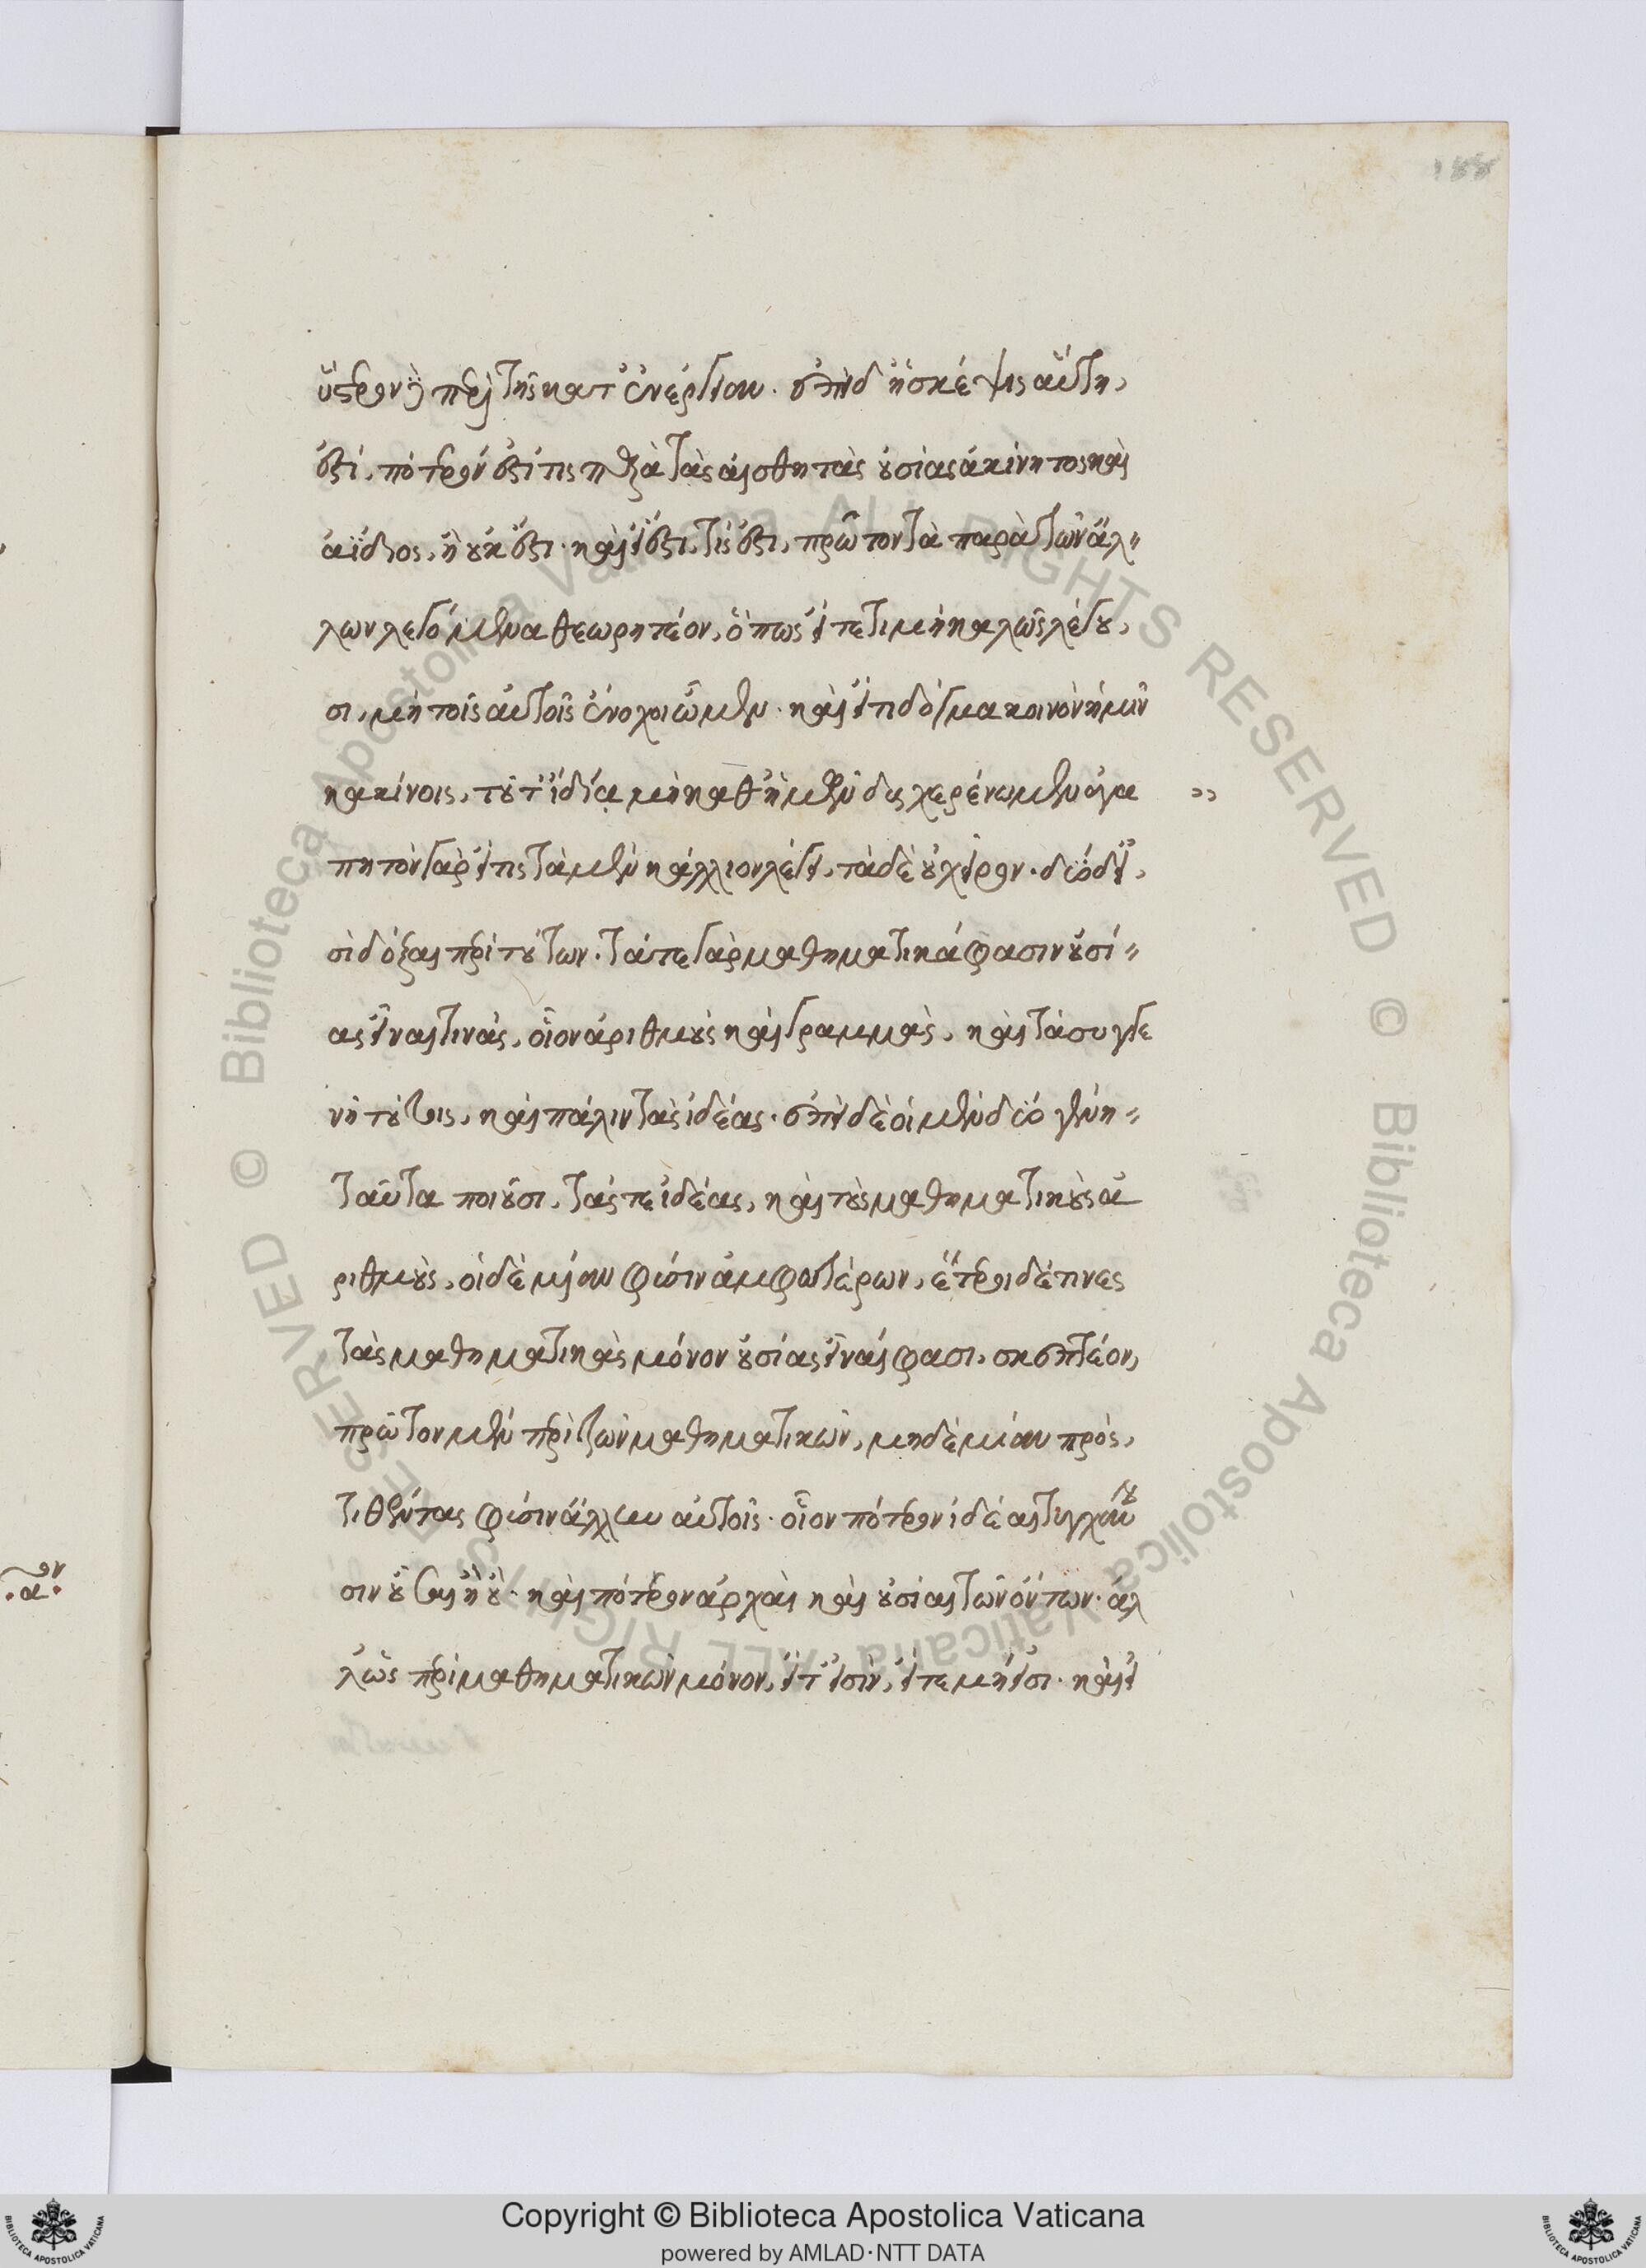 188
ὕστερον δὲ περὶ τῆς κατ' ἐνέργειαν. ἐπεὶ δ' ἡ σκέψις αὕτη,
ἐστί, πότερόν ἐστί τις παρὰ τὰς αἰσθητὰς οὐσίας ἀκίνητος καὶ
ἀΐδιος, ἢ οὐκ ἔστι· καὶ εἰ ἔστι, τίς ἐστι, πρῶτον τὰ παρὰ τῶν ἄλ
λων λεγόμενα θεωρητέον, ὅπως εἴ τέ τι μὴ καλῶς λέγου,
σι, μὴ τοῖς αὐτοῖς ἐνοχοι ὦμεν· καὶ εἴ τι δόγμα κοινὸν ἡμῖν
κακείνοις, τοῦτ' ἰδίᾳ μὴ καθ' ἡμῶν δυσχεραίνωμεν ἀγα
πητὸν γὰρ εἴ τις τὰ μὲν κάλλιον λέγει, τὰ δὲ οὐ χεῖρον. δύο δ' εἰ,
σὶ δόξαι περὶ τούτων. τά τε γὰρ μαθηματικά φασιν οὐσί
ας εἶναί τινας, οἷον ἀριθμοὺς καὶ γραμμὰς, καὶ τὰ συγγε
νῆ τούτοις, καὶ πάλιν τὰς ἰδέας. ἐπεὶ δὲ οἱ μὲν δύο γένη
ταῦτα ποιοῦσι, τάς τε ἰδέας, καὶ τοὺς μαθηματικοὺς ἀ
ριθμοὺς, οἱ δὲ μίαν φύσιν ἀμφοτέρων, ἕτεροι δέ τινες
τὰς μαθηματικὰς μόνον οὐσίας εἶναί φασι, σκεπτέον,
πρῶτον μὲν περὶ τῶν μαθηματικῶν, μηδὲ μίαν προς,
τιθέντας φύσιν ἄλλην αὐτοῖς. οἷον πότερον ἰδέαι τυγχάνου
σιν οὖσαι ἢ οὔ. καὶ πότερον ἀρχαὶ καὶ οὐσίαι τῶν ὄντων. ἀλ
λ' ὡς περὶ μαθηματικῶν μόνον, εἴτ' εἰσὶν, εἴτε μή εἰσι. καὶ εἰ
.α.ον
© Biblioteca Apostolica Vaticana ALL RIGHTS RESERVED © Biblioteca Apostolica Vaticana ALL RIGHTS RESERVED
Copyright © Biblioteca Apostolica Vaticana
powered by AMLAD·NTT DATA
BIBLIOTECA APOSTOLICA VATICANA
BIBLIOTECA APOSTOLICA VATICANA